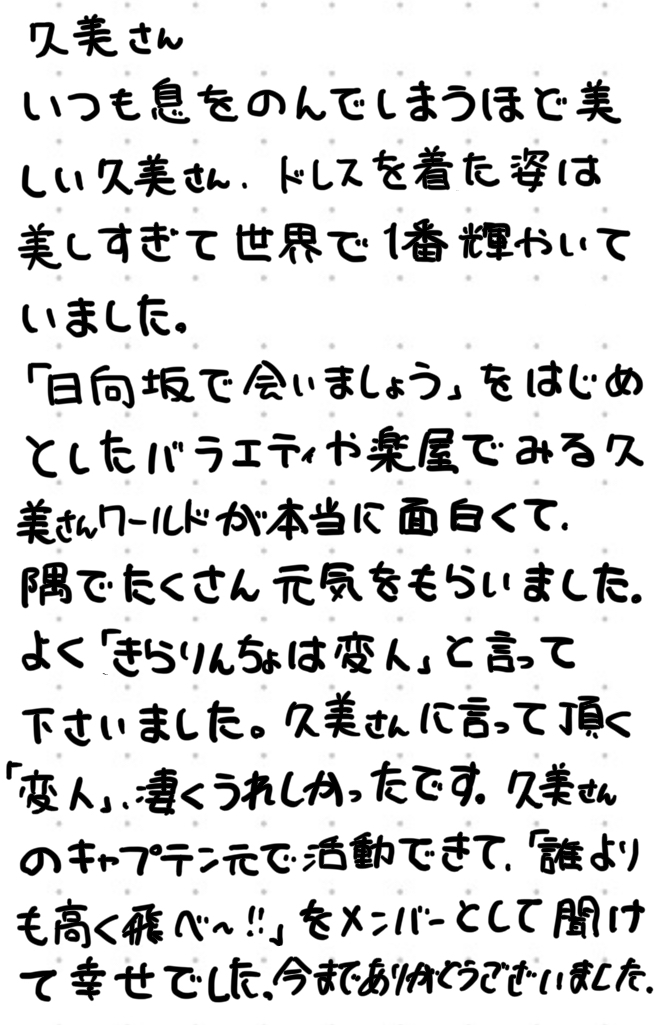 久美さん
いつも息をのんでしまうほど美
しい久美さん、ドレスを着た姿は
美しすぎて世界で1番輝やいて
いました。
「日向坂で会いましょう」をはじめ
としたバラエティや楽屋でみる久
美さんワールドが本当に面白くて、
隅でたくさん元気をもらいました。
よく「きらりんちょは変人」と言って
下さいました。久美さんに言って頂く
「変人」、凄くうれしかったです。久美さん
のキャプテン元で活動できて、「誰より
も高く飛べ〜!!」をメンバーとして聞け
て幸せでした。今までありがとうございました、